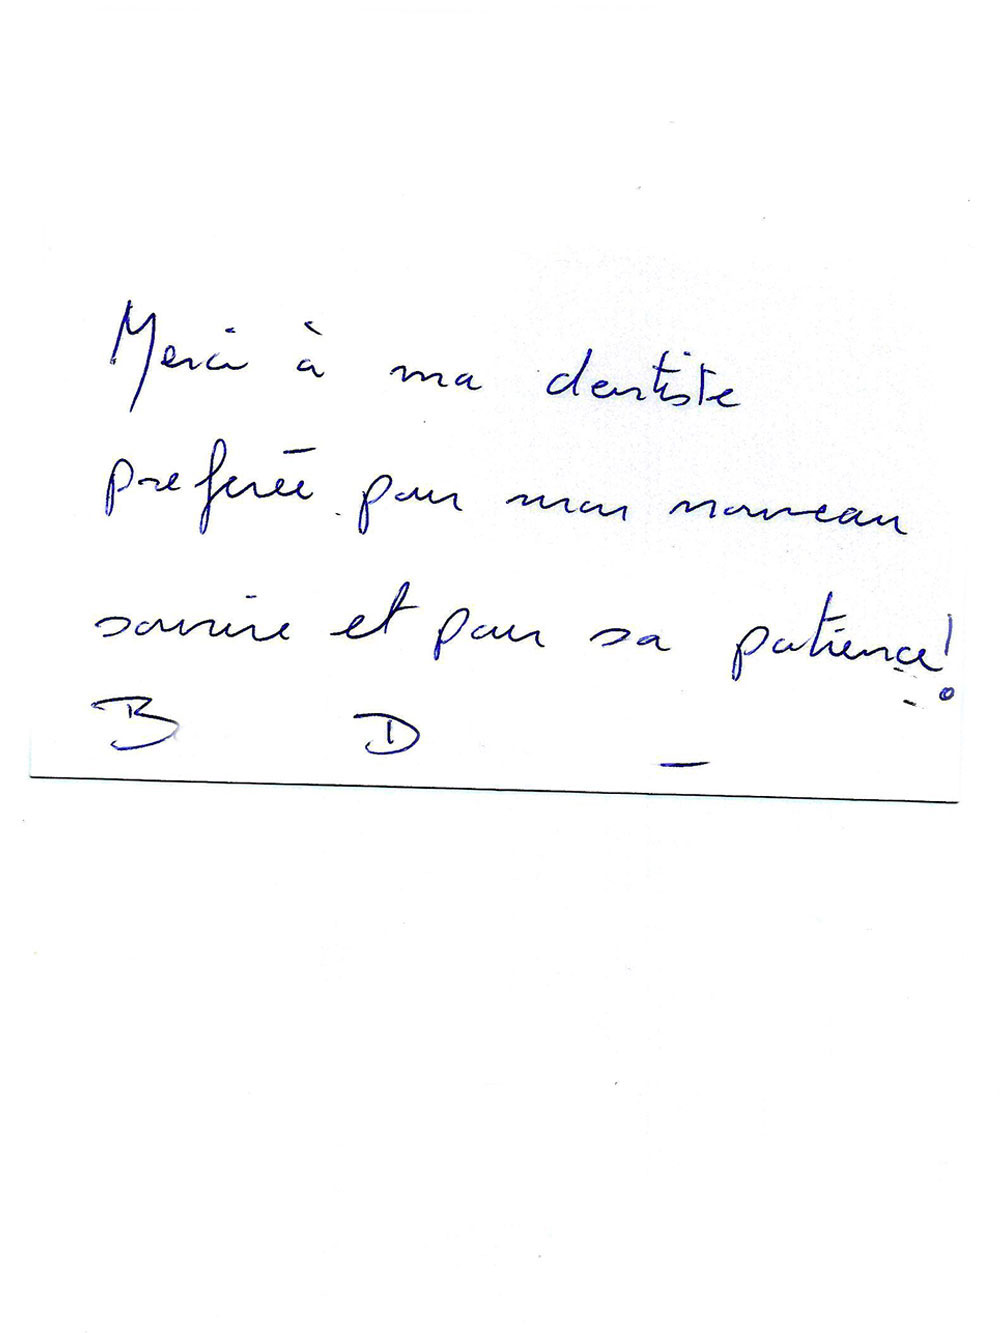 Merci à ma dentiste
preferée pour mon nouveau
sourire et pour sa patience!
B D _